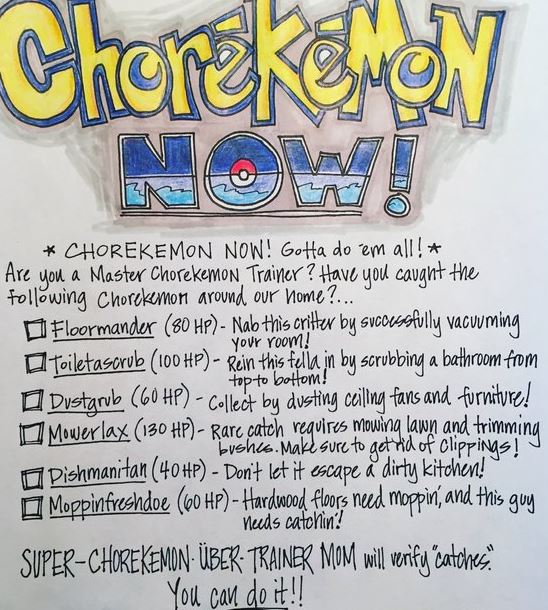 Chorekémon
NOW!
* CHOREKEMON NOW! Gotta do 'em all! *
Are you a Master Chorekemon Trainer? Have you caught the
following Chorekemon around our home?...
Floormander (80 HP) - Nab this critter by successfully vacuuming
your room!
Toiletascrub (100 HP) - Rein this fella in by scrubbing a bathroom from
top to bottom!
Dustgrub (60 HP) - Collect by dusting ceiling fans and furniture!
Mowerlax (130 HP) - Rare catch requires mowing lawn and trimming
bushes. Make sure to get rid of clippings!
Dishmanitan (40 HP) - Don't let it escape a dirty kitchen!
Moppinfreshdoe (60 HP) - Hardwood floors need moppin', and this guy
needs catchin'!
SUPER-CHOREKEMON·ÜBER·TRAINER MOM will verify "catches."
You can do it!!